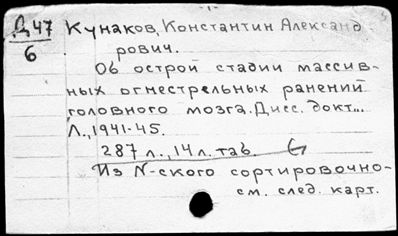 Д 47
6
Кунаков, Константин Александ
рович.
Об острой стадии массив-
ных огнестрельных ранений
головного мозга. Дисс. докт...
Л., 1941-45.
287 л., 14 л. таб.
Из N-ского сортировочно-
см. след. карт.